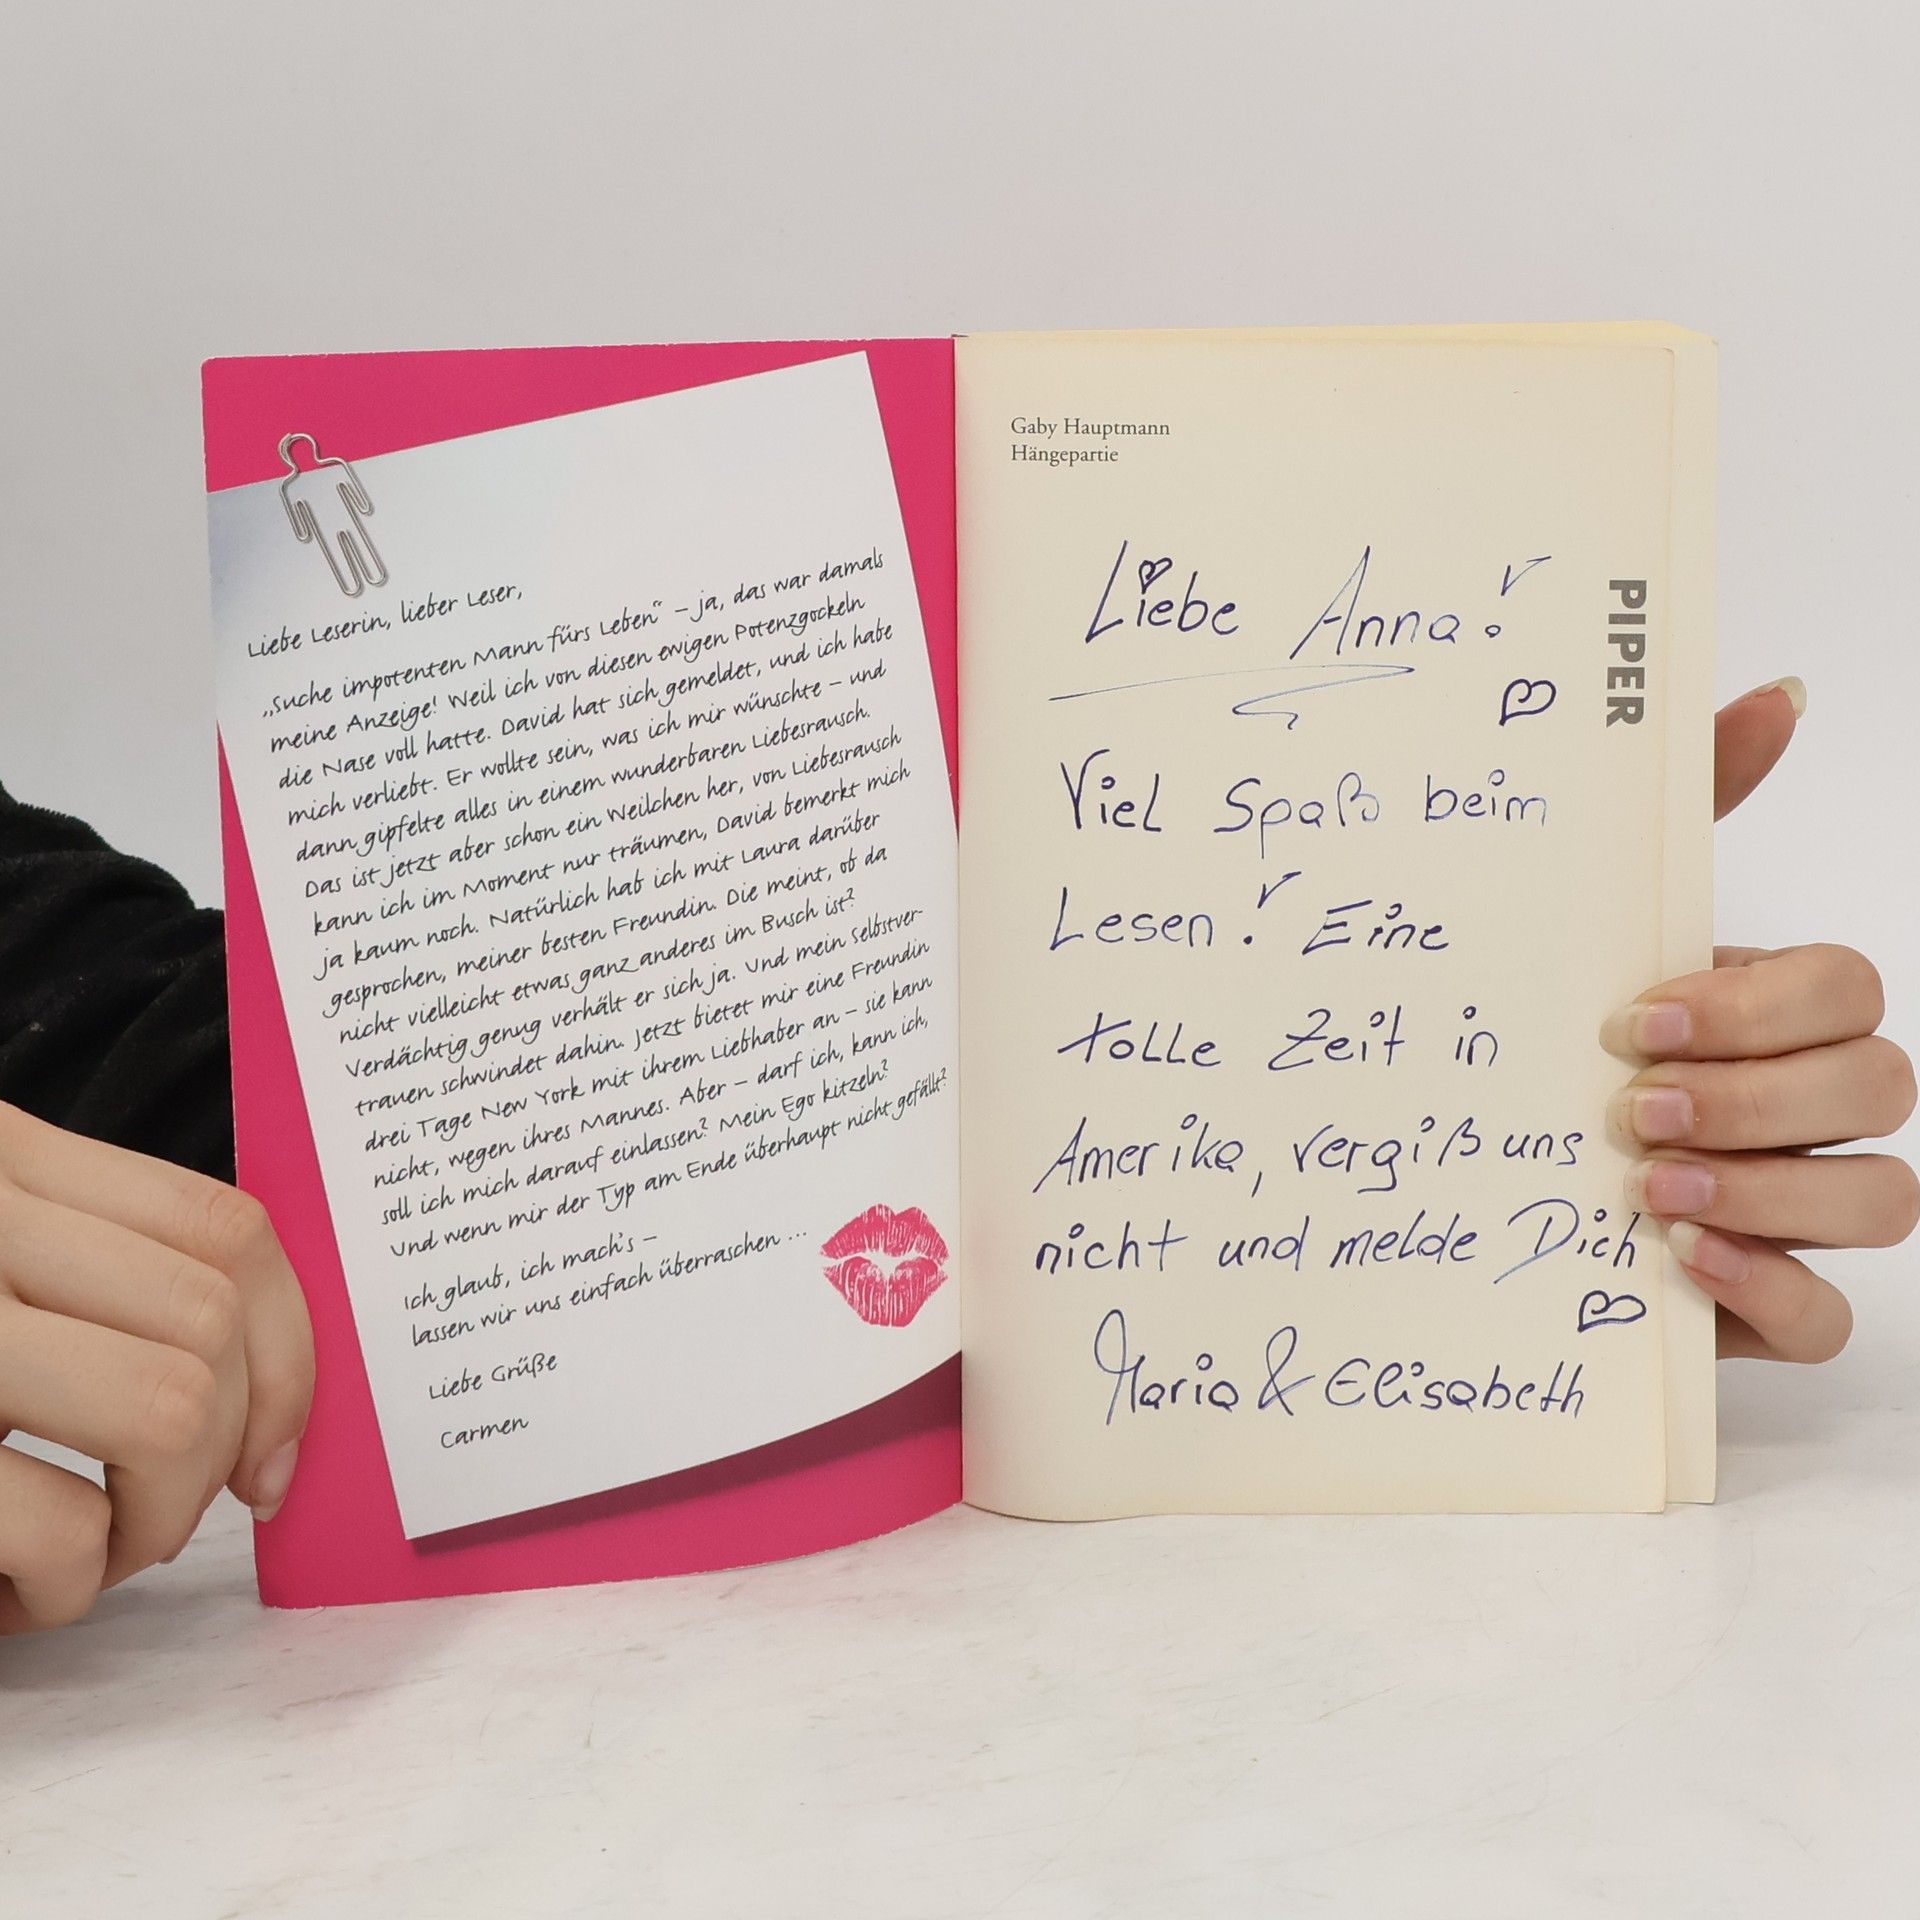 Liebe Leserin, lieber Leser,
„Suche impotenten Mann fürs Leben“ – ja, das war damals
meine Anzeige! Weil ich von diesen ewigen Potenzgockeln
die Nase voll hatte. David hat sich gemeldet, und ich habe
mich verliebt. Er wollte sein, was ich mir wünschte – und
dann gipfelte alles in einem wunderbaren Liebesrausch.
Das ist jetzt aber schon ein Weilchen her, von Liebesrausch
kann ich im Moment nur träumen, David bemerkt mich
ja kaum noch. Natürlich hab ich mit Laura darüber
gesprochen, meiner besten Freundin. Die meint, ob da
nicht vielleicht etwas ganz anderes im Busch ist?
Verdächtig genug verhält er sich ja. Und mein Selbstver-
trauen schwindet dahin. Jetzt bietet mir eine Freundin
drei Tage New York mit ihrem Liebhaber an – sie kann
nicht, wegen ihres Mannes. Aber – darf ich, kann ich,
soll ich mich darauf einlassen? Mein Ego kitzeln?
Und wenn mir der Typ am Ende überhaupt nicht gefällt?
Ich glaub, ich mach's –
lassen wir uns einfach überraschen ...
Liebe Grüße
Carmen
Gaby Hauptmann
Hängepartie
PIPER
Liebe Anna!
Viel Spaß beim
Lesen! Eine
tolle Zeit in
Amerika, vergiß uns
nicht und melde Dich
Maria & Elisabeth